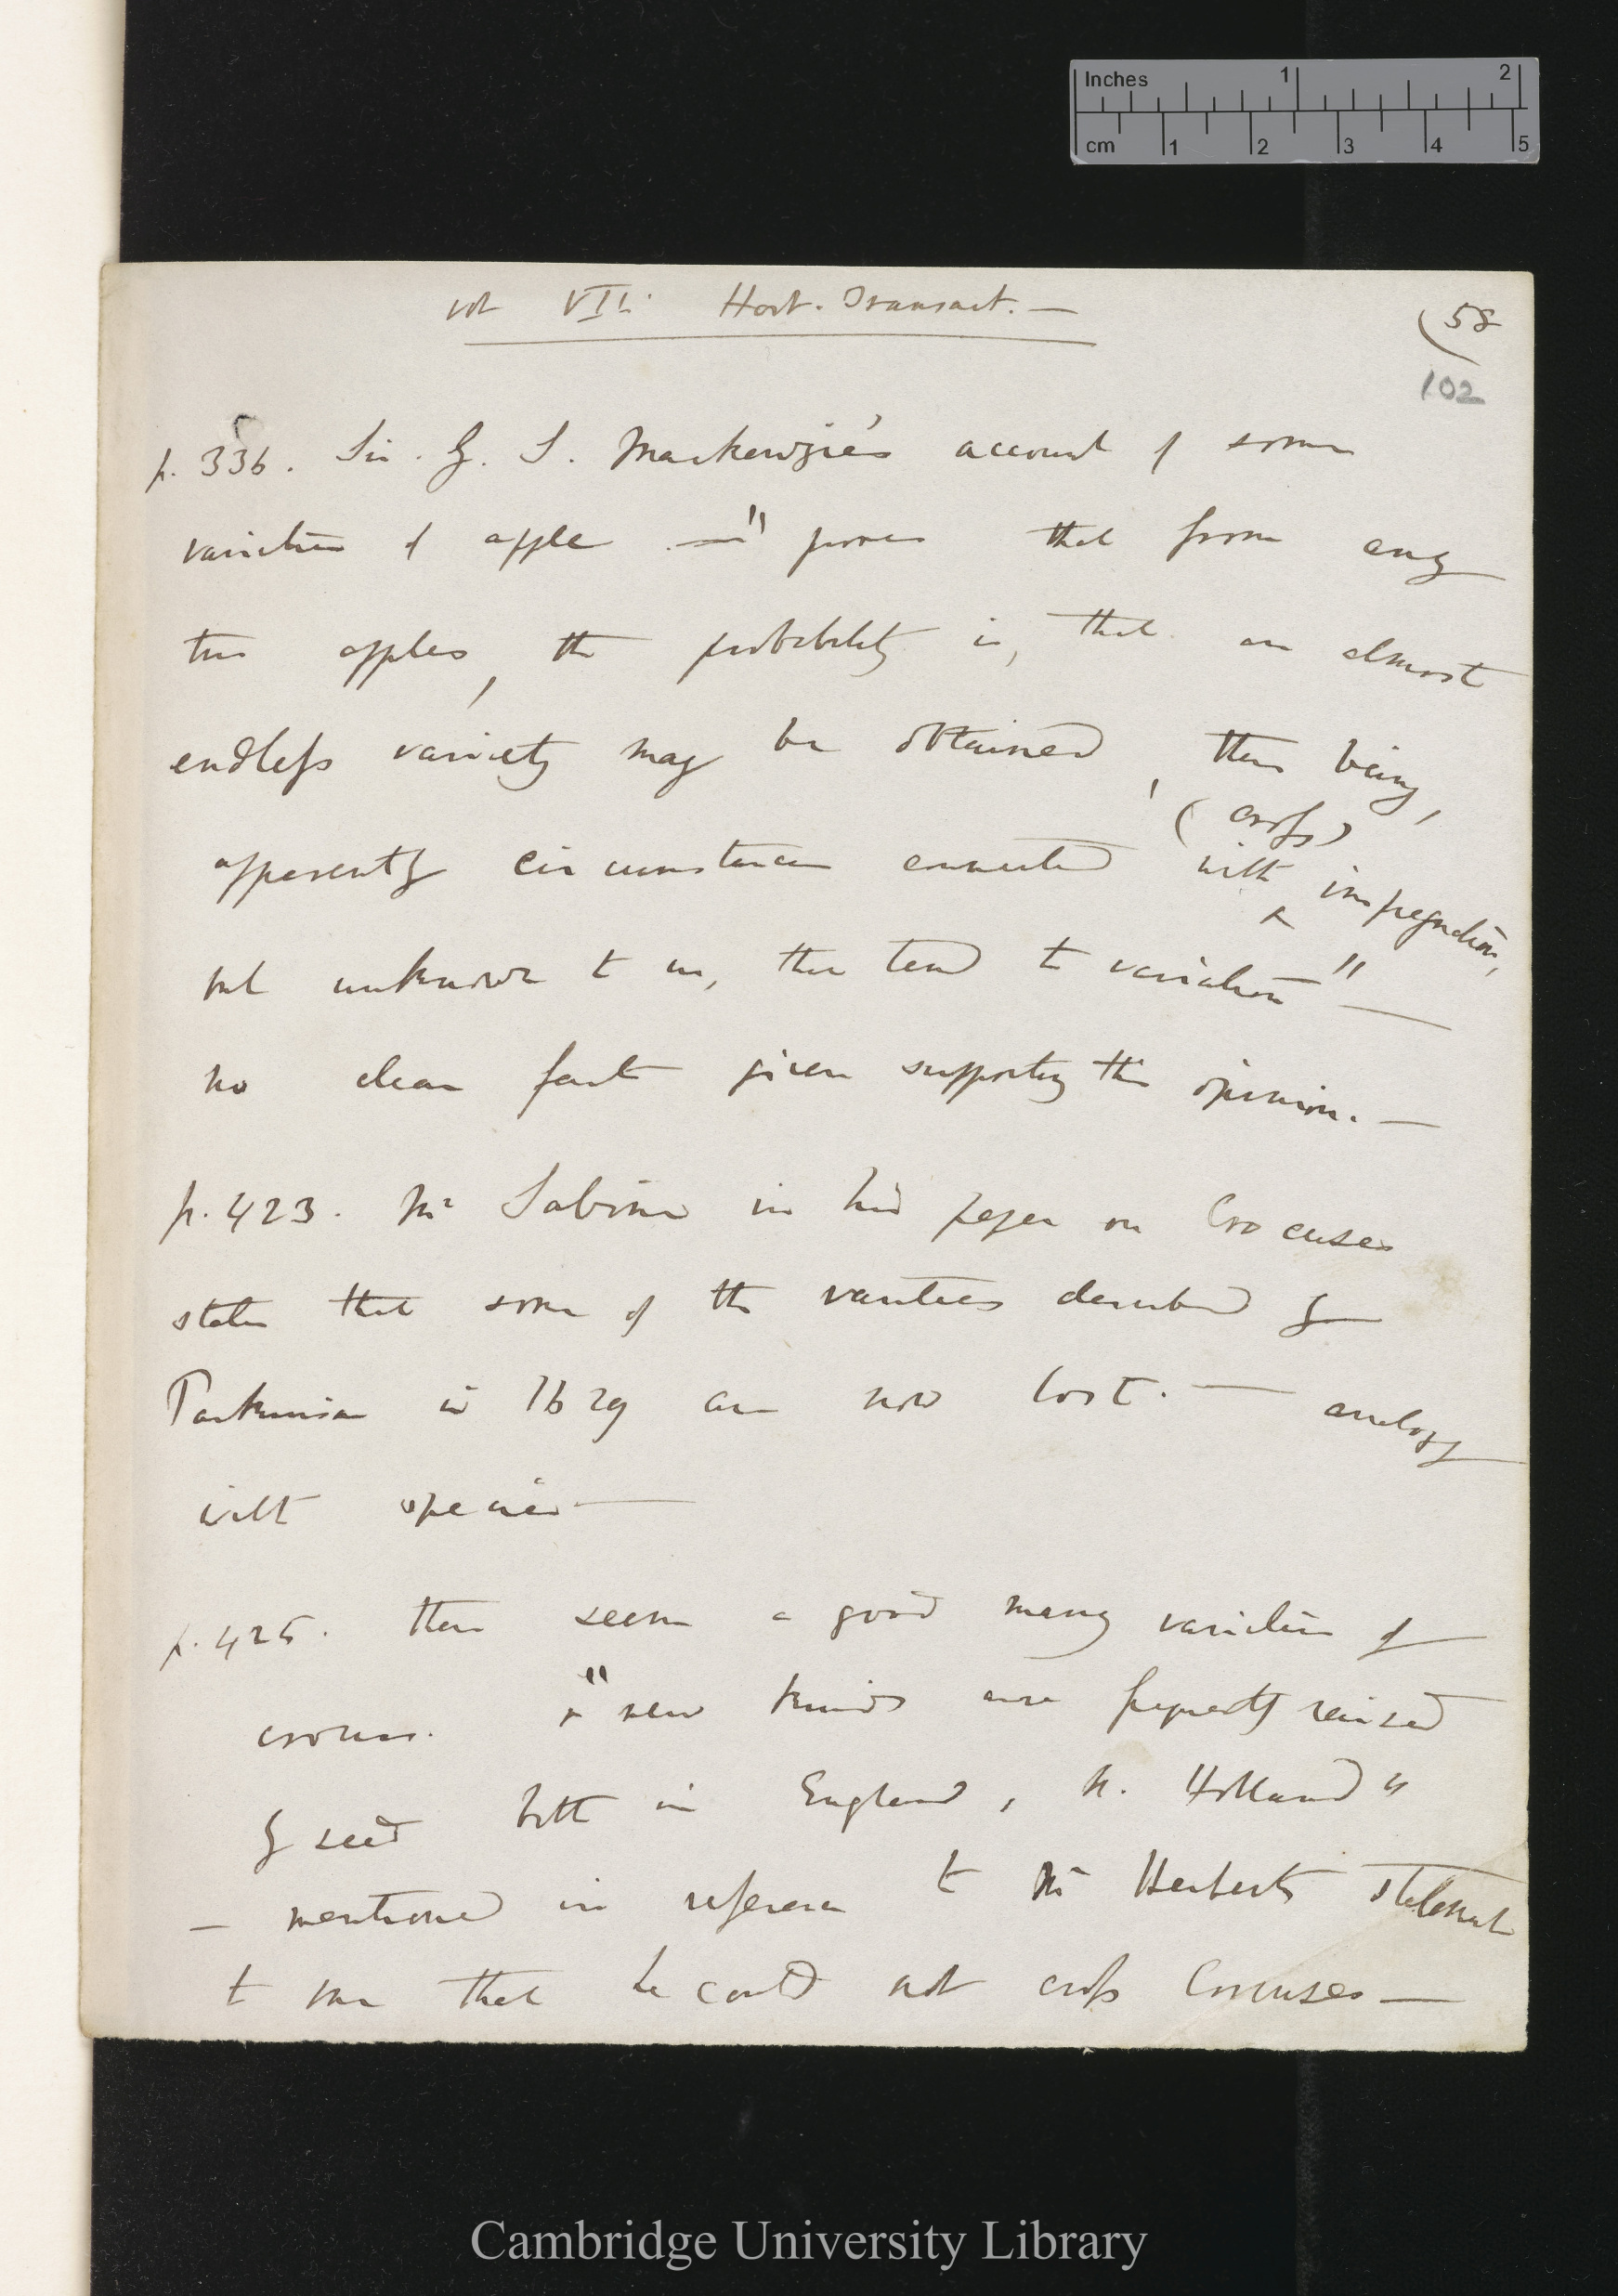 Inches 1 2
cm 1 2 3 4 5
vol VII. Hort. Transact. —
(58
102
p. 336. Sir. G. S. Mackenzie's account of some
varieties of apple — " proves that from any
two apples, the probability is, that an almost
endless variety may be obtained, there being,
(cross)
apparently circumstances connected with ^ impregnation,
but unknown to us, that tend to variation" —
no clear fact given supporting this opinion. —
p. 423. Mr Sabine in his paper on Crocuses
states that some of the varieties described by
Parkinson in 1629 are now lost. — analogy
with species —
p. 425. There seems a good many varieties of
crocus. & "new kinds are frequently raised
by seed both in England, & Holland"
— mentioned in reference to Mr Herberts statement
to me that he could not cross Crocuses —
Cambridge University Library